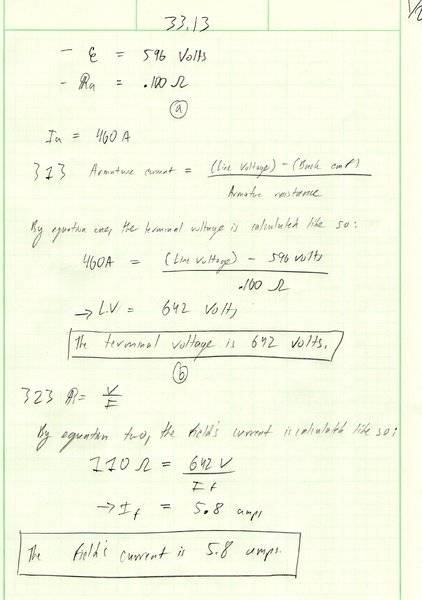 33.13
- ε = 596 Volts
- Ra = .100 Ω
(a)
Ia = 460 A
313 Armature current = (Line Voltage) - (Back emf) / Armature resistance
By equation one, the terminal voltage is calculated like so:
460A = (Line Voltage) - 596 volts / .100 Ω
→ L.V = 642 Volts
The terminal voltage is 642 volts.
(b)
323 R = V/I
By equation two, the field's current is calculated like so:
110 Ω = 642 V / If
→ If = 5.8 amps
The field's current is 5.8 amps.